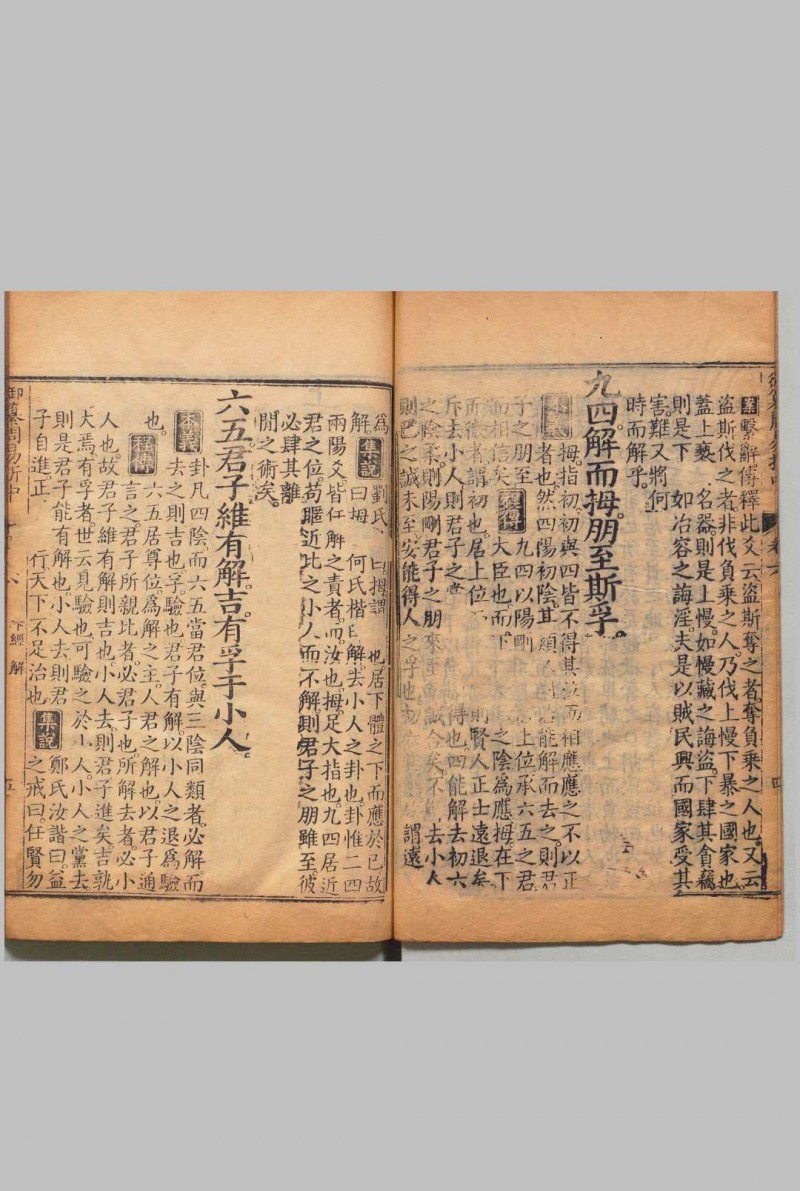 案繫辭傳釋此爻云盜斯奪之者奪負乘之人也又云
盜斯伐之者非伐負乘之人乃伐上慢下暴之國家也
蓋上褻名器則是上慢如慢藏之誨盜下肆其貪竊
則是下如冶容之誨淫夫是以賊民興而國家受其
害難又將何
時而解乎
九四解而拇朋至斯孚
拇指初初與四皆不得其位而相應應之不以正
者也然四陽初陰其類能解而去之則君
子之朋至九四以陽剛上位承六五之君
而相信矣程傳大臣也而下之陰爲應拇在下
而微者謂初也居上位則賢人正士遠退矣
斥去小人則君子之得也四能解去初六
之陰柔則陽剛君子之朋來至誠今矣不去小人
則已之誠未至安能得人之孚也謂遠
爲
解集說劉氏曰拇謂也居下體之下而應於已故
曰拇何氏楷曰解去小人之卦也卦惟二四
兩陽爻皆任解之責者而汝也拇足大指也九四居近
君之位苟暱近比之小人而不解則君子之朋雖至彼
必肆其離
間之術矣
六五君子維有解吉有孚于小人
本義卦凡四陰而六五當君位與三陰同類者必解而
去之則吉也孚驗也君子有解以小人之退爲驗
也程傳六五居尊位爲解之主人君之解也以君子通
言之君子所親比者必君子也所解去者必小
人也故君子維有解則吉也小人去則君子進矣吉孰
大焉有孚者世云見驗也可驗之於小人小人之黨去
則是君子能有解也小人去則君
子自進正行天下不足治也集說鄭氏汝諧曰益
之戒曰任賢勿
御纂周易折中
下經解
五